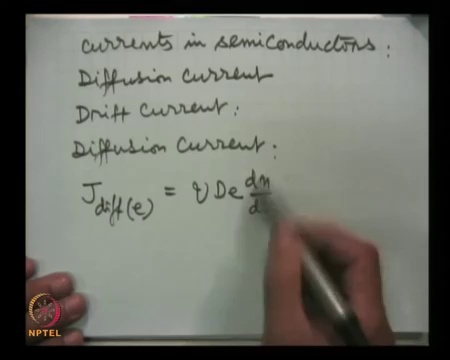 currents in semiconductors:
Diffusion Current
Drift Current:
Diffusion Current:
J diff(e) = q De dn/d
NPTEL